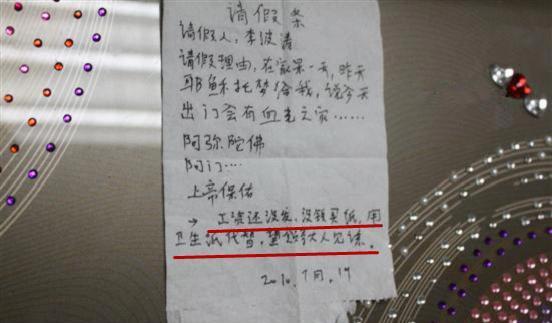 请假条
请假人：李波清
请假理由：在家呆一天，昨天
耶稣托梦给我，说今天
出门会有血光之灾……
阿弥陀佛
阿门…
上帝保佑
→工资还没发，没钱买纸，用
卫生纸代替，望领导大人见谅。
2010.7月.19